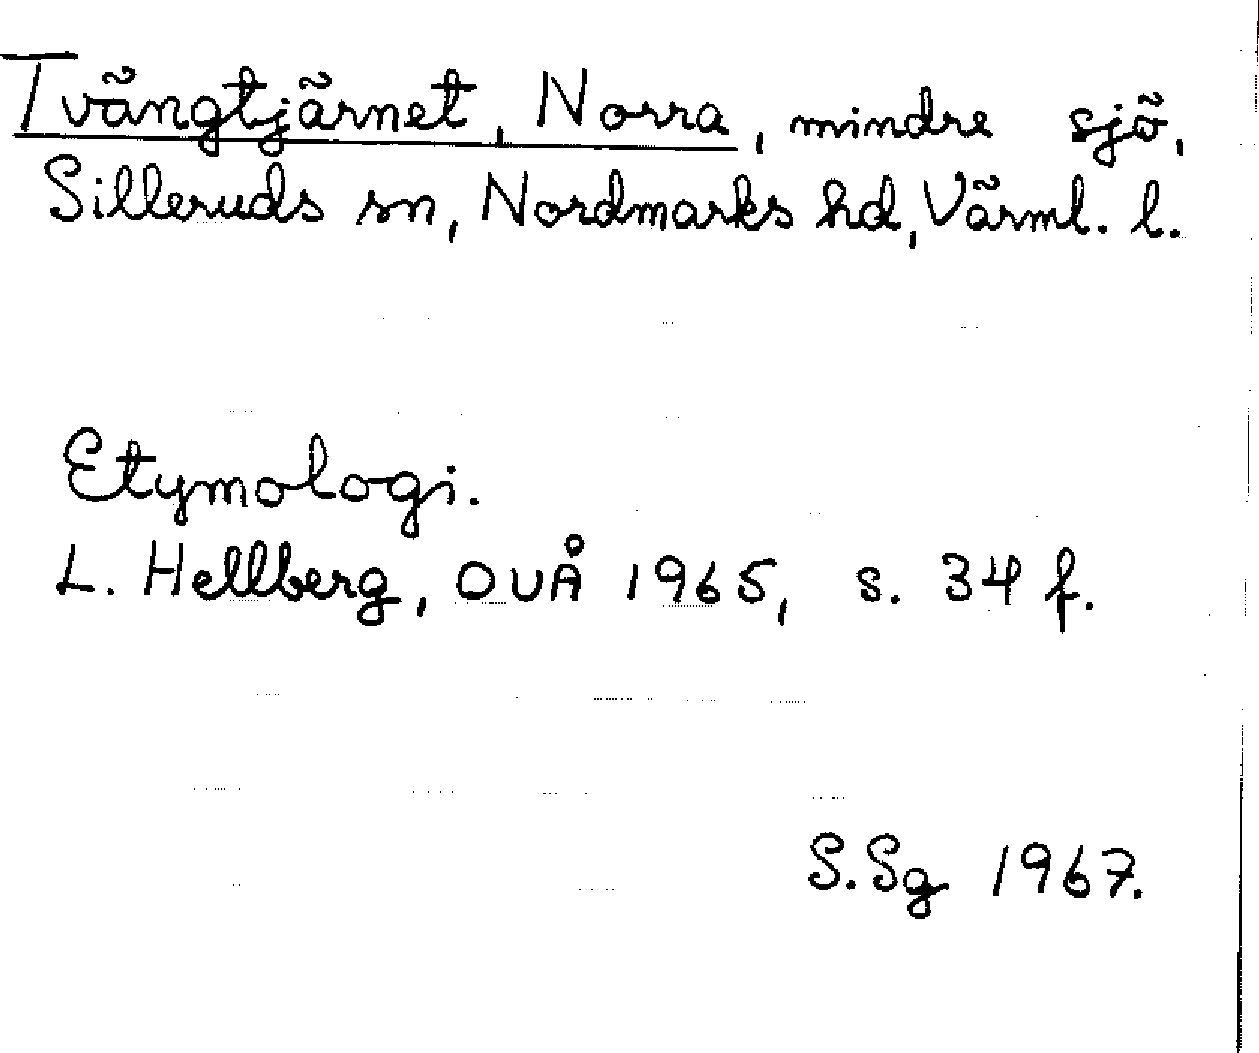 Tvängtjärnet, Norra, mindre sjö,
Silleruds sn, Nordmarks hd, Värml. l.
Etymologi.
L. Hellberg, OUÅ 1965, s. 34 f.
S.Sg 1967.